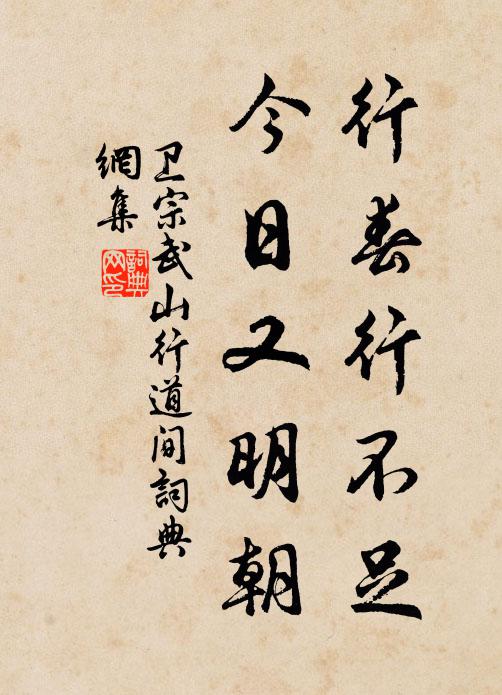 行春行不足
今日又明朝
卫宗武山行道间詞典
網集
詞典
网印